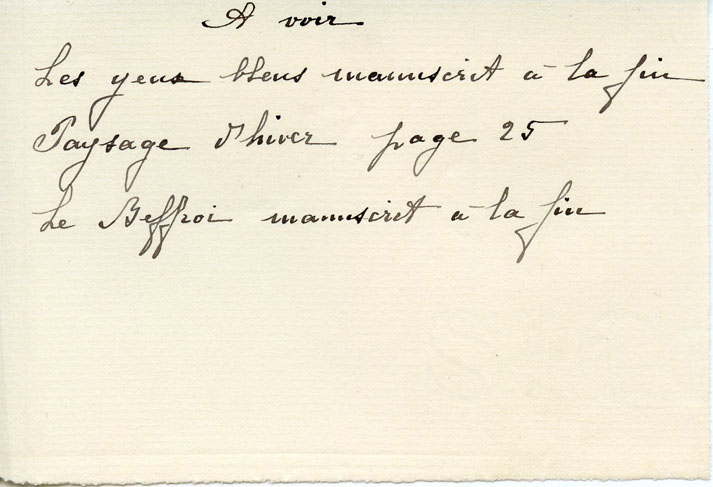 A voir
Les yeux bleus manuscrit à la fin
Paysage d'hiver page 25
Le Beffroi manuscrit à la fin